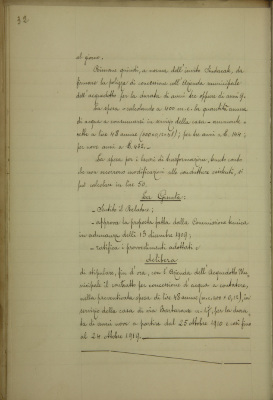 32
al giorno.
Rimane quindi, a norma dell'invito Sindacale, da
firmare la polizza di concessione coll'Azienda municipale
dell'acquedotto per la durata di anni tre oppure di anni 9.
La spesa calcolando a 1100 m.c. la quantità annua
di acqua a consumarsi in servizio della casa ammonte-
rebbe a lire 48 annue; per tre anni a lire 144;
per nove anni a L. 432.
La spesa per i lavori di trasformazione, tenuto conto
che non occorrono modificazioni alle condutture esistenti, si
può calcolare in lire 50.
La Giunta:
- Sentito il Relatore;
- approva la proposta fatta dalla Commissione tecnica
in adunanza delli 13 dicembre 1909;
- ratifica i provvedimenti adottati e
delibera
di stipulare, fin d'ora, con l'Azienda dell'Acquedotto Mu-
nicipale il contratto per concessione di acqua a contatore,
sulla preventivata spesa di lire 48 annue, in
servizio della casa di via Barbaroux n. 17, per la dura-
ta di anni nove a partire dal 25 Ottobre 1910 e così fino
al 24 Ottobre 1919.